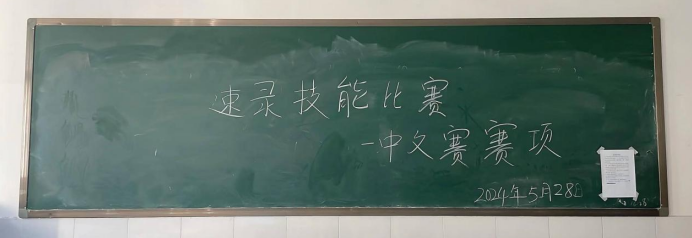 速录技能比赛
-中文赛赛项
2024年5月28日